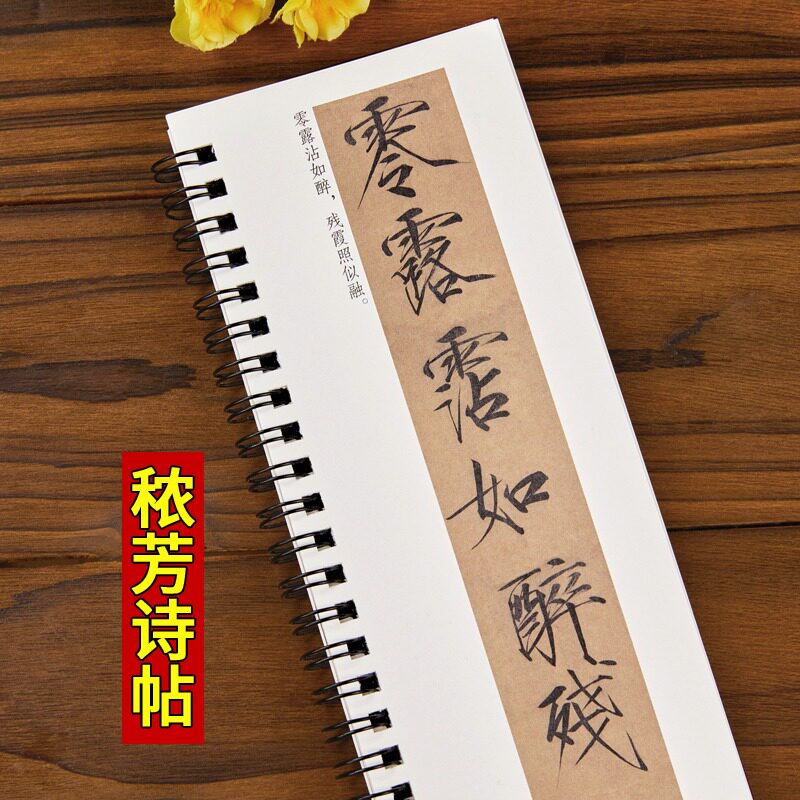 零露霑如醉殘
零露沾如醉，残霞照似融。
秾芳诗帖